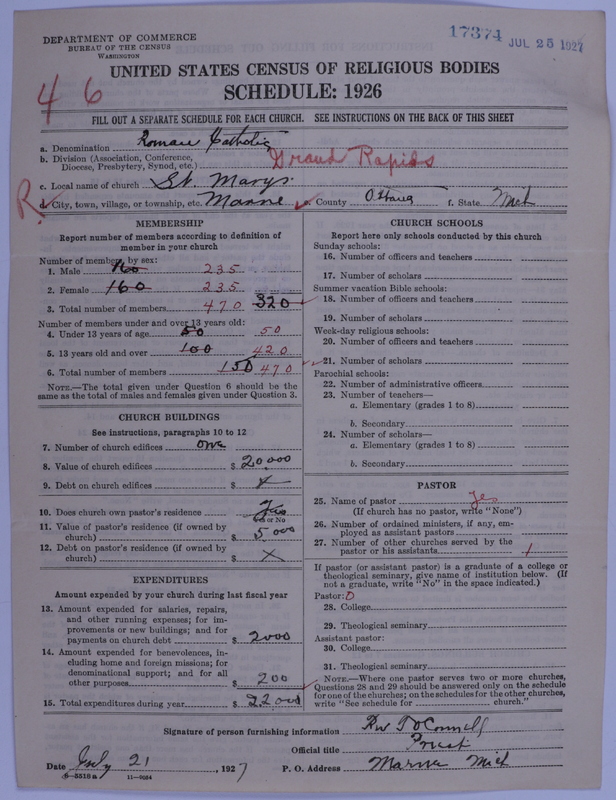 DEPARTMENT OF COMMERCE
BUREAU OF THE CENSUS
WASHINGTON
17374 JUL 25 1927
UNITED STATES CENSUS OF RELIGIOUS BODIES
SCHEDULE: 1926
4 6
FILL OUT A SEPARATE SCHEDULE FOR EACH CHURCH. SEE INSTRUCTIONS ON THE BACK OF THIS SHEET
a. Denomination Roman Catholic
b. Division (Association, Conference,
Diocese, Presbytery, Synod, etc.) Grand Rapids
c. Local name of church St. Marys
R. d. City, town, village, or township, etc. Marne e. County Ottawa f. State Mich
MEMBERSHIP
Report number of members according to definition of
member in your church
Number of members, by sex:
1. Male 160 235
2. Female 160 235
3. Total number of members 470 320
Number of members under and over 13 years old:
4. Under 13 years of age 50 50
5. 13 years old and over 100 420
6. Total number of members 150 470
NOTE.—The total given under Question 6 should be the
same as the total of males and females given under Question 3.
CHURCH BUILDINGS
See instructions, paragraphs 10 to 12
7. Number of church edifices one
8. Value of church edifices $ 20000
9. Debt on church edifices $ x
10. Does church own pastor's residence Yes
Yes or No
11. Value of pastor's residence (if owned by
church) $ 5000
12. Debt on pastor's residence (if owned by
church) $ X
EXPENDITURES
Amount expended by your church during last fiscal year
13. Amount expended for salaries, repairs,
and other running expenses; for im-
provements or new buildings; and for
payments on church debt $ 2000
14. Amount expended for benevolences, in-
cluding home and foreign missions; for
denominational support; and for all
other purposes $ 200
15. Total expenditures during year $ 2200
CHURCH SCHOOLS
Report here only schools conducted by this church
Sunday schools:
16. Number of officers and teachers
17. Number of scholars
Summer vacation Bible schools:
18. Number of officers and teachers
19. Number of scholars
Week-day religious schools:
20. Number of officers and teachers
21. Number of scholars
Parochial schools:
22. Number of administrative officers
23. Number of teachers—
a. Elementary (grades 1 to 8)
b. Secondary
24. Number of scholars—
a. Elementary (grades 1 to 8)
b. Secondary
PASTOR
25. Name of pastor Yes
(If church has no pastor, write "None")
26. Number of ordained ministers, if any, em-
ployed as assistant pastors
27. Number of other churches served by the
pastor or his assistants 1
If pastor (or assistant pastor) is a graduate of a college or
theological seminary, give name of institution below. (If
not a graduate, write "No" in the space indicated.)
Pastor: 0
28. College
29. Theological seminary
Assistant pastor:
30. College
31. Theological seminary
NOTE.—Where one pastor serves two or more churches,
Questions 28 and 29 should be answered only on the schedule
for one of the churches; on the schedules for the other churches,
write "See schedule for church."
Signature of person furnishing information Rev T O'Connell
Official title Priest
Date July 21, 1927 P. O. Address Marne Mich
6—5518a 11—9034